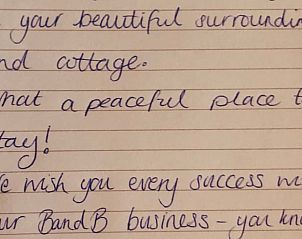 your beautiful surroundin
nd cottage.
hat a peaceful place t
tay!
e wish you every success wi
ur BandB business - you kn